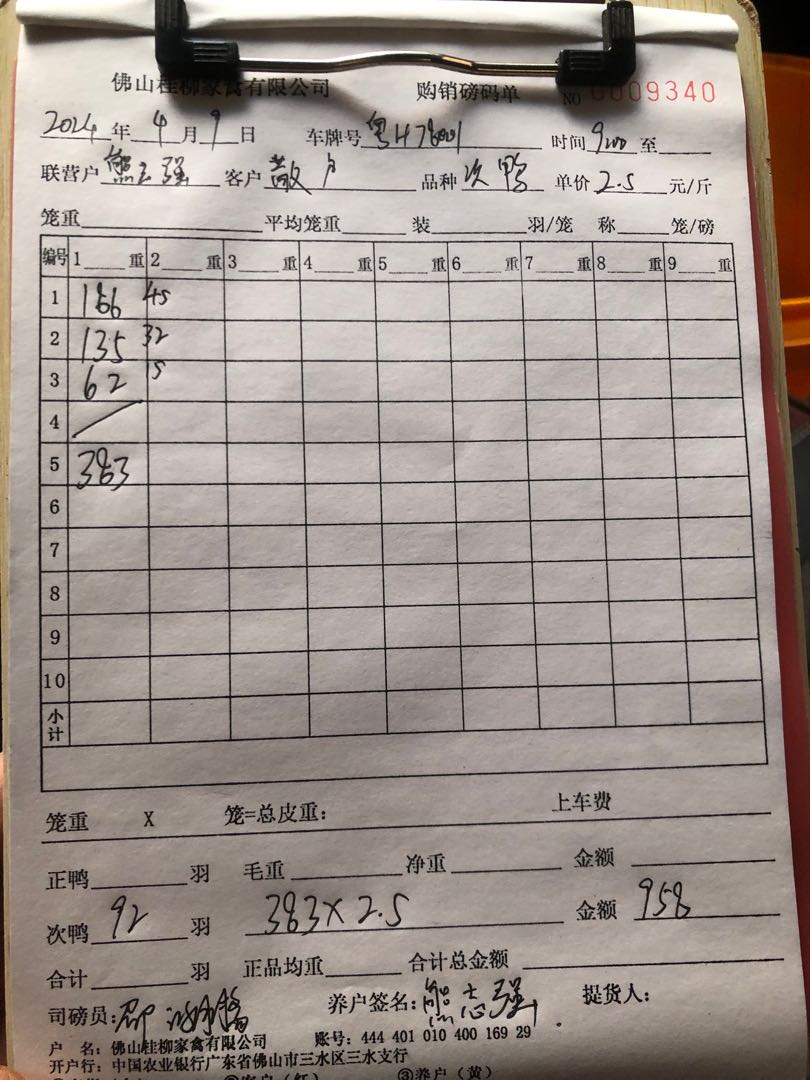 佛山桂柳家禽有限公司 购销磅码单 NO 0009340
2024年4月9日 车牌号 粤H78001 时间 9:00 至
联营户 熊志强 客户 散户 品种 次鸭 单价 2.5 元/斤
笼重 平均笼重 装 羽/笼 称 笼/磅
编号 1 重 2 重 3 重 4 重 5 重 6 重 7 重 8 重 9 重
1 186 45
2 135 32
3 62 15
4 /
5 383
6
7
8
9
10
小计
笼重 X 笼=总皮重: 上车费
正鸭 羽 毛重 净重 金额
次鸭 92 羽 383×2.5 金额 958
合计 羽 正品均重 合计总金额
司磅员: 养户签名: 熊志强 提货人:
户 名: 佛山桂柳家禽有限公司 账号: 444 401 010 400 169 29
开户行: 中国农业银行广东省佛山市三水区三水支行
②客户(红) ③养户(黄)